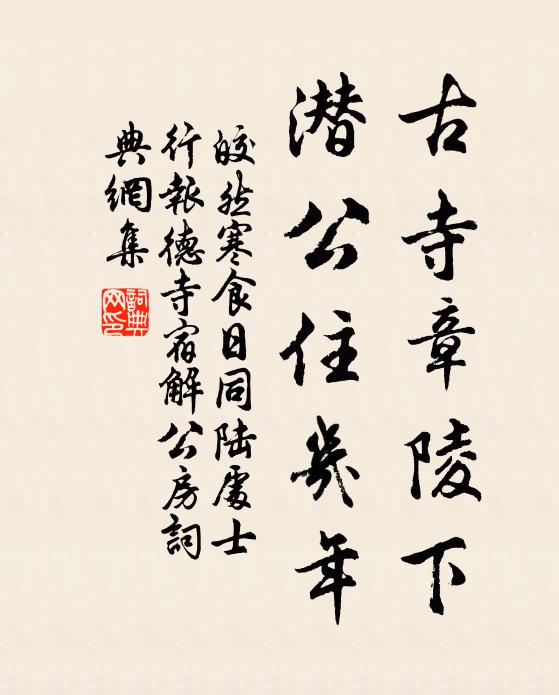 古寺章陵下
潜公住幾年
皎然寒食日同陸處士
行報德寺宿解公房詞
典網集
詞典
网印